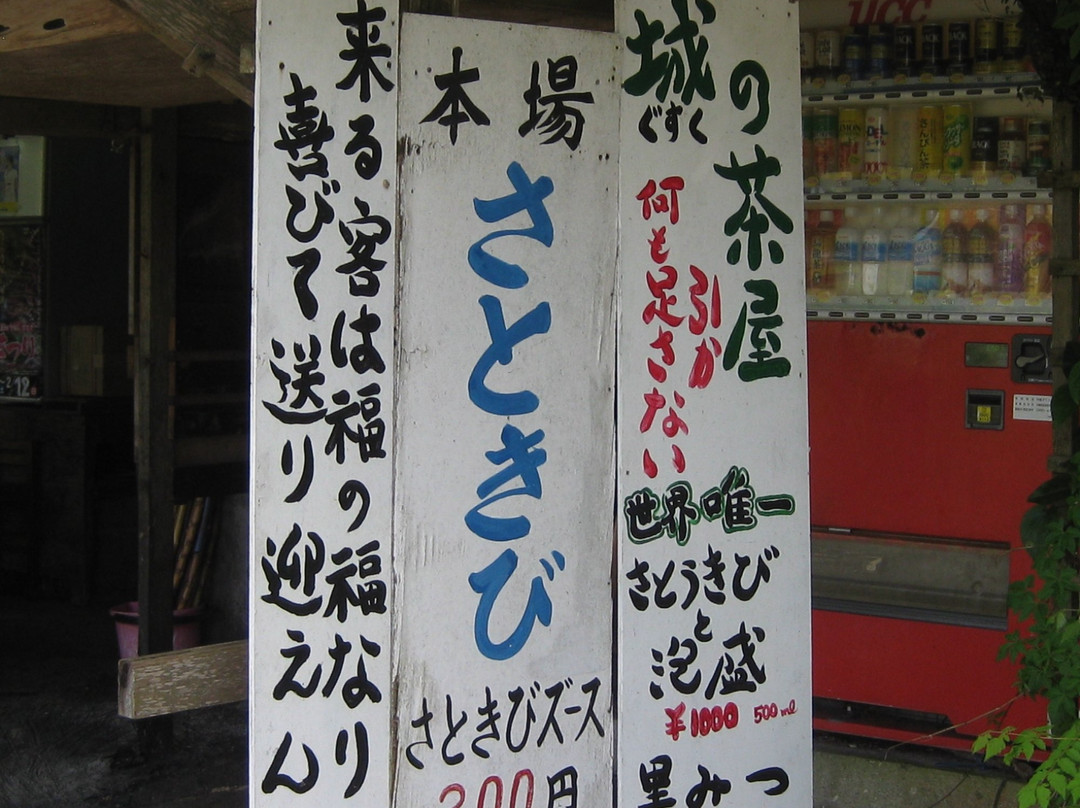 城の茶屋
ぐすく
引か
何も足さない
世界唯一
さとうきび
と
泡盛
¥1000 500ml
黒みつ
本場
さときび
さときびズース
円
来る客は福の福なり
喜びて送り迎えん
ucc
さんぴん茶